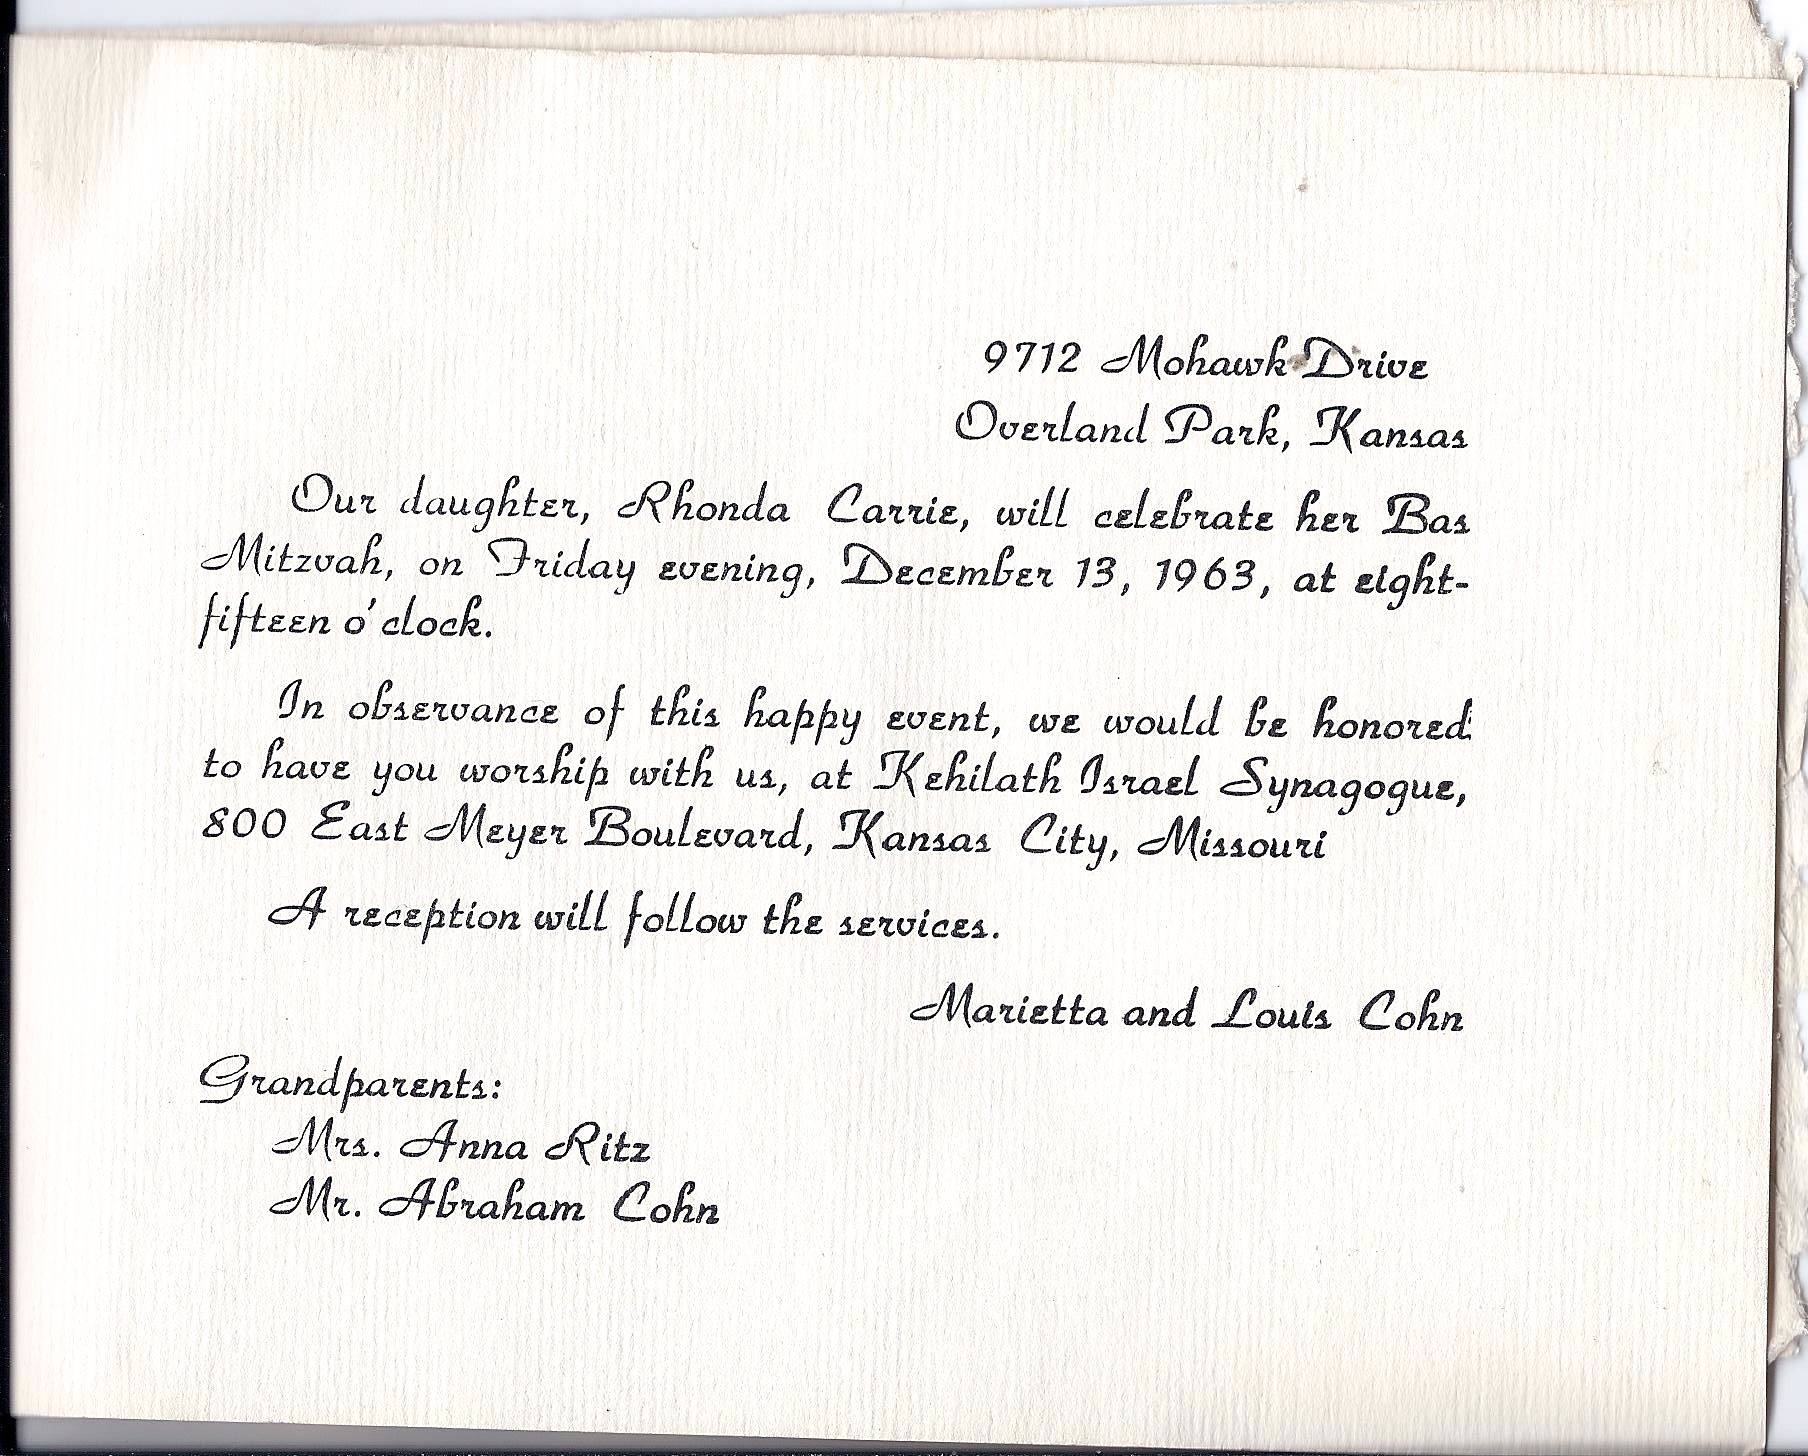 9712 Mohawk Drive
Overland Park, Kansas
Our daughter, Rhonda Carrie, will celebrate her Bas
Mitzvah, on Friday evening, December 13, 1963, at eight-
fifteen o'clock.
In observance of this happy event, we would be honored
to have you worship with us, at Kehilath Israel Synagogue,
800 East Meyer Boulevard, Kansas City, Missouri
A reception will follow the services.
Marietta and Louis Cohn
Grandparents:
Mrs. Anna Ritz
Mr. Abraham Cohn